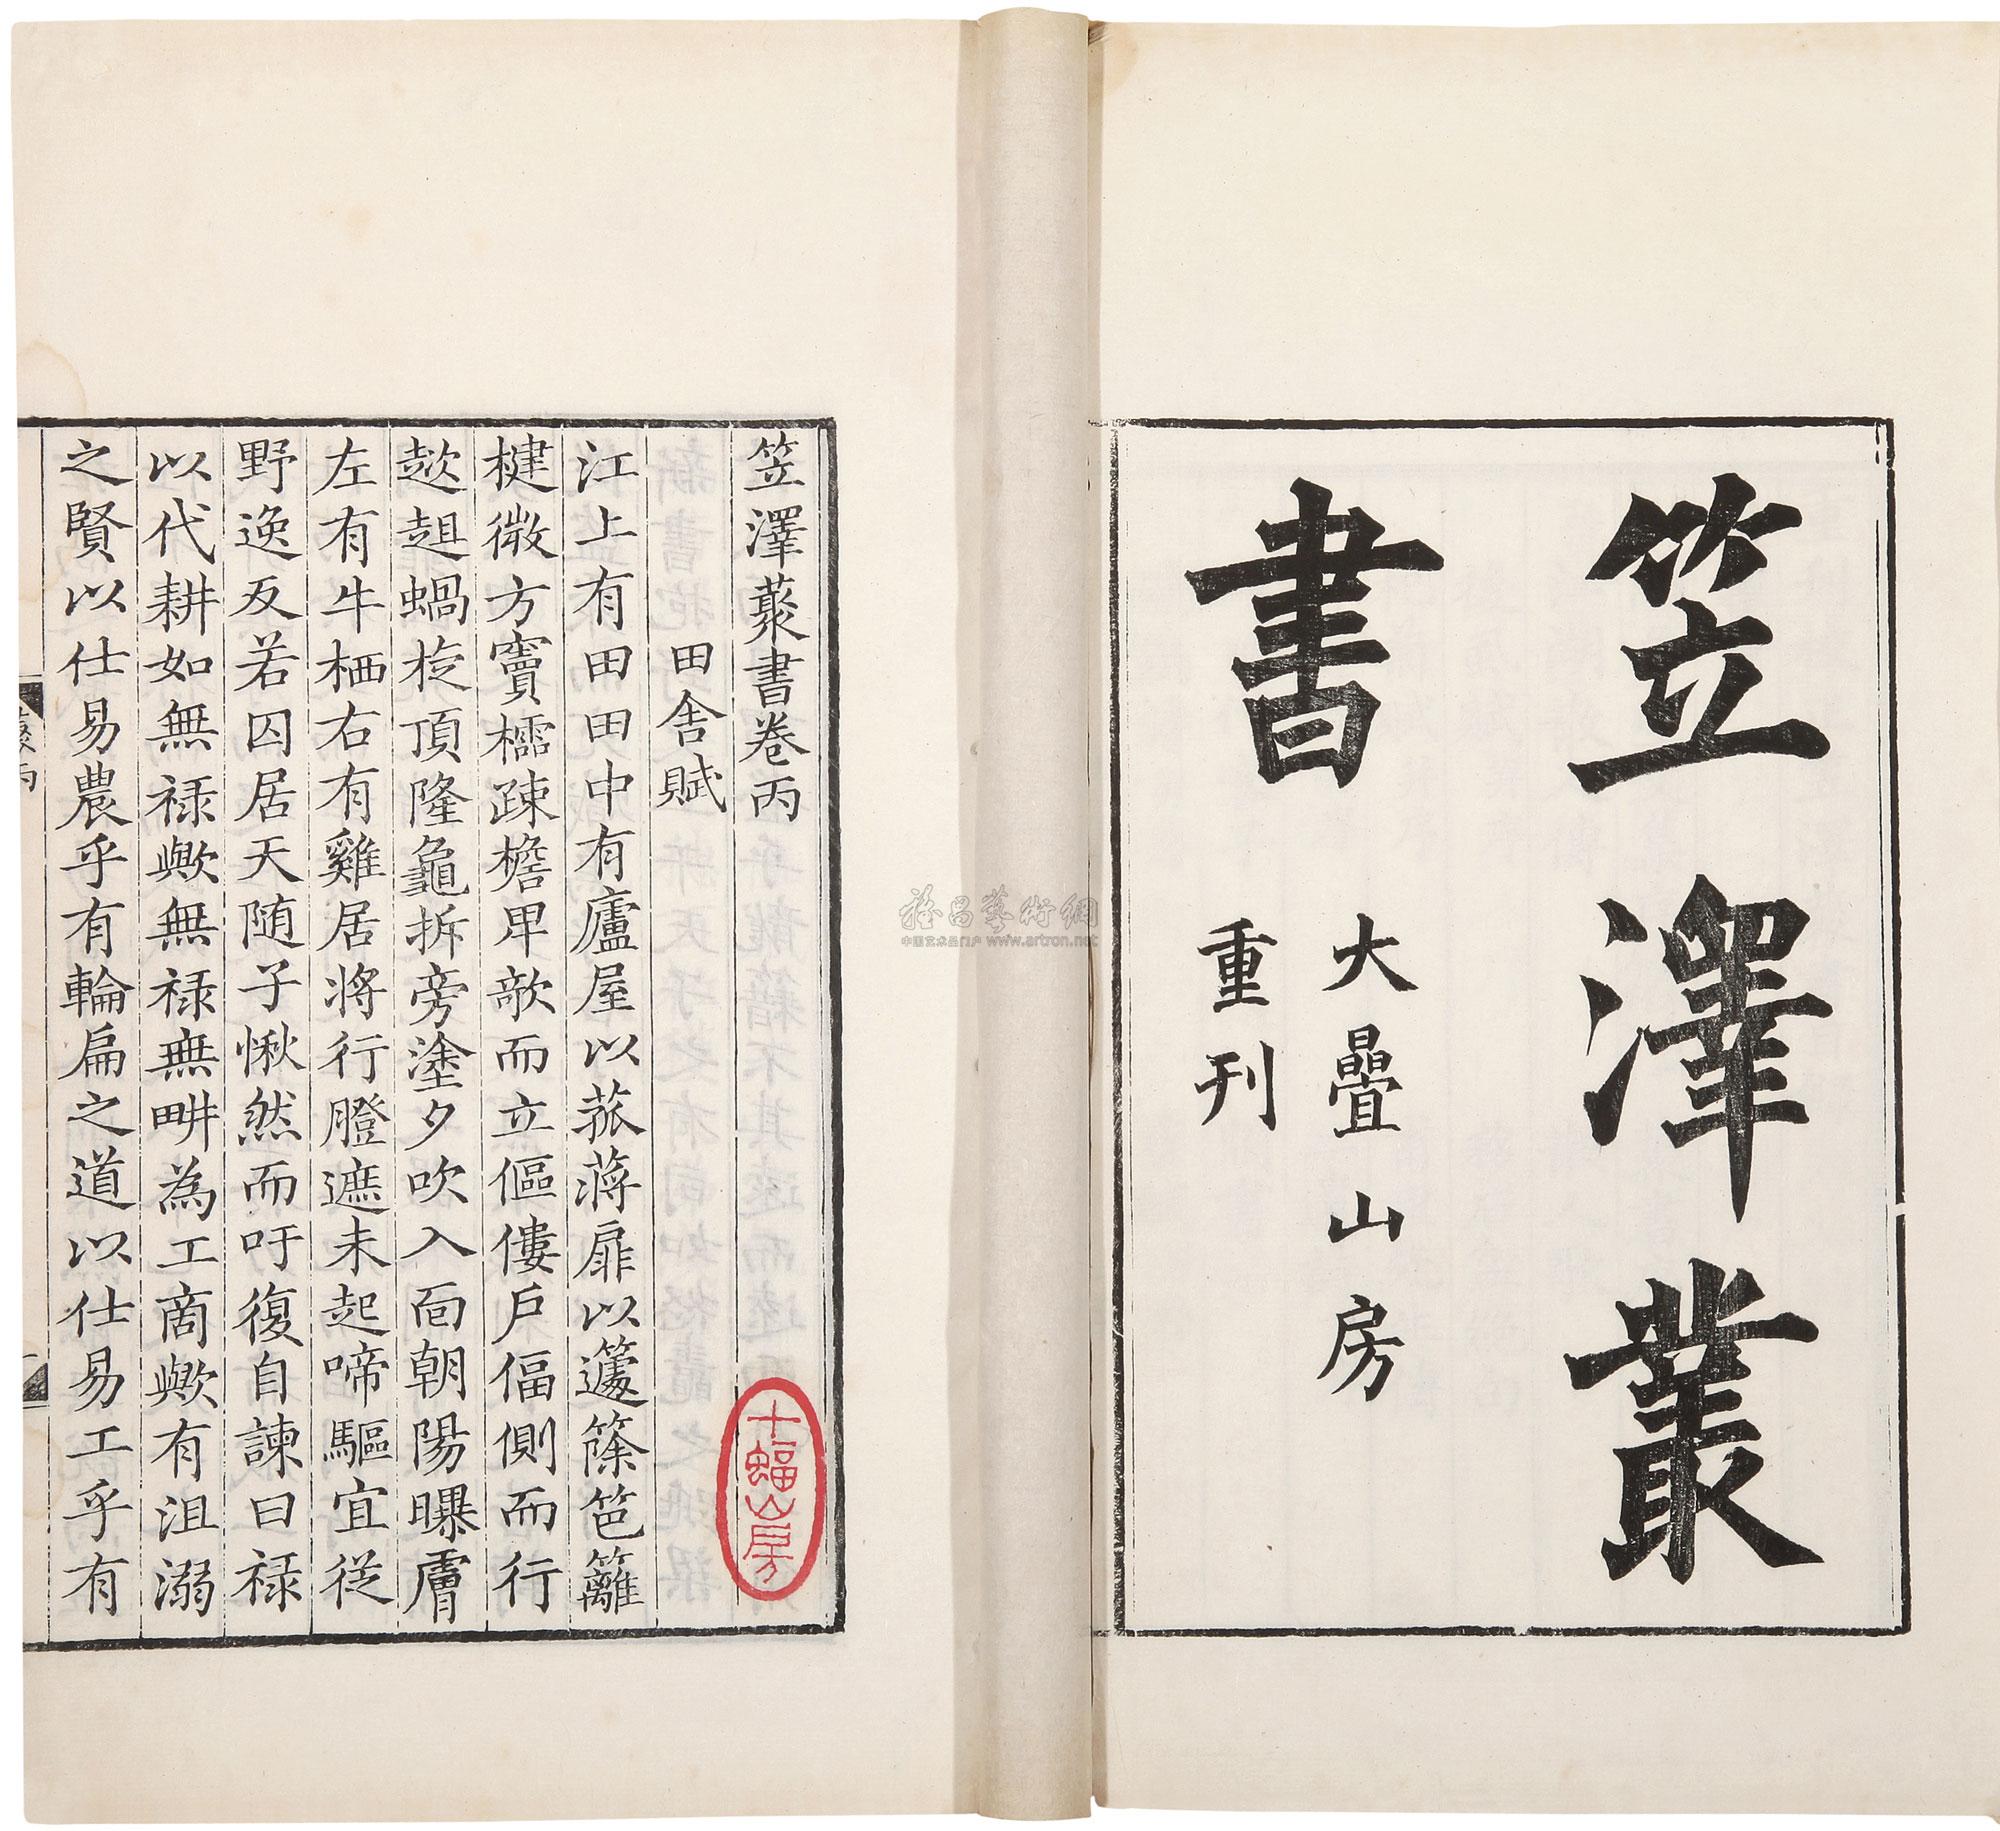 笠澤叢
書
大疊山房
重刊
笠澤藂書卷丙
田舍賦
江上有田田中有廬屋以菰蔣扉以籧篨笆籬
楗微方竇櫺疎檐卑欹而立傴僂戶偪側而行
趑趄蝸旋頂隆龜拆旁塗夕吹入面朝陽曝膚
左有牛栖右有雞居將行瞪遮未起啼驅宜從
野逸反若囚居天随子愀然而吁復自諫曰禄
以代耕如無禄歟無禄無畊為工商歟有沮溺
之賢以仕易農乎有輪扁之道以仕易工乎有
十蝠山房
雅昌藝術網
中国艺术品门户 www.artron.net